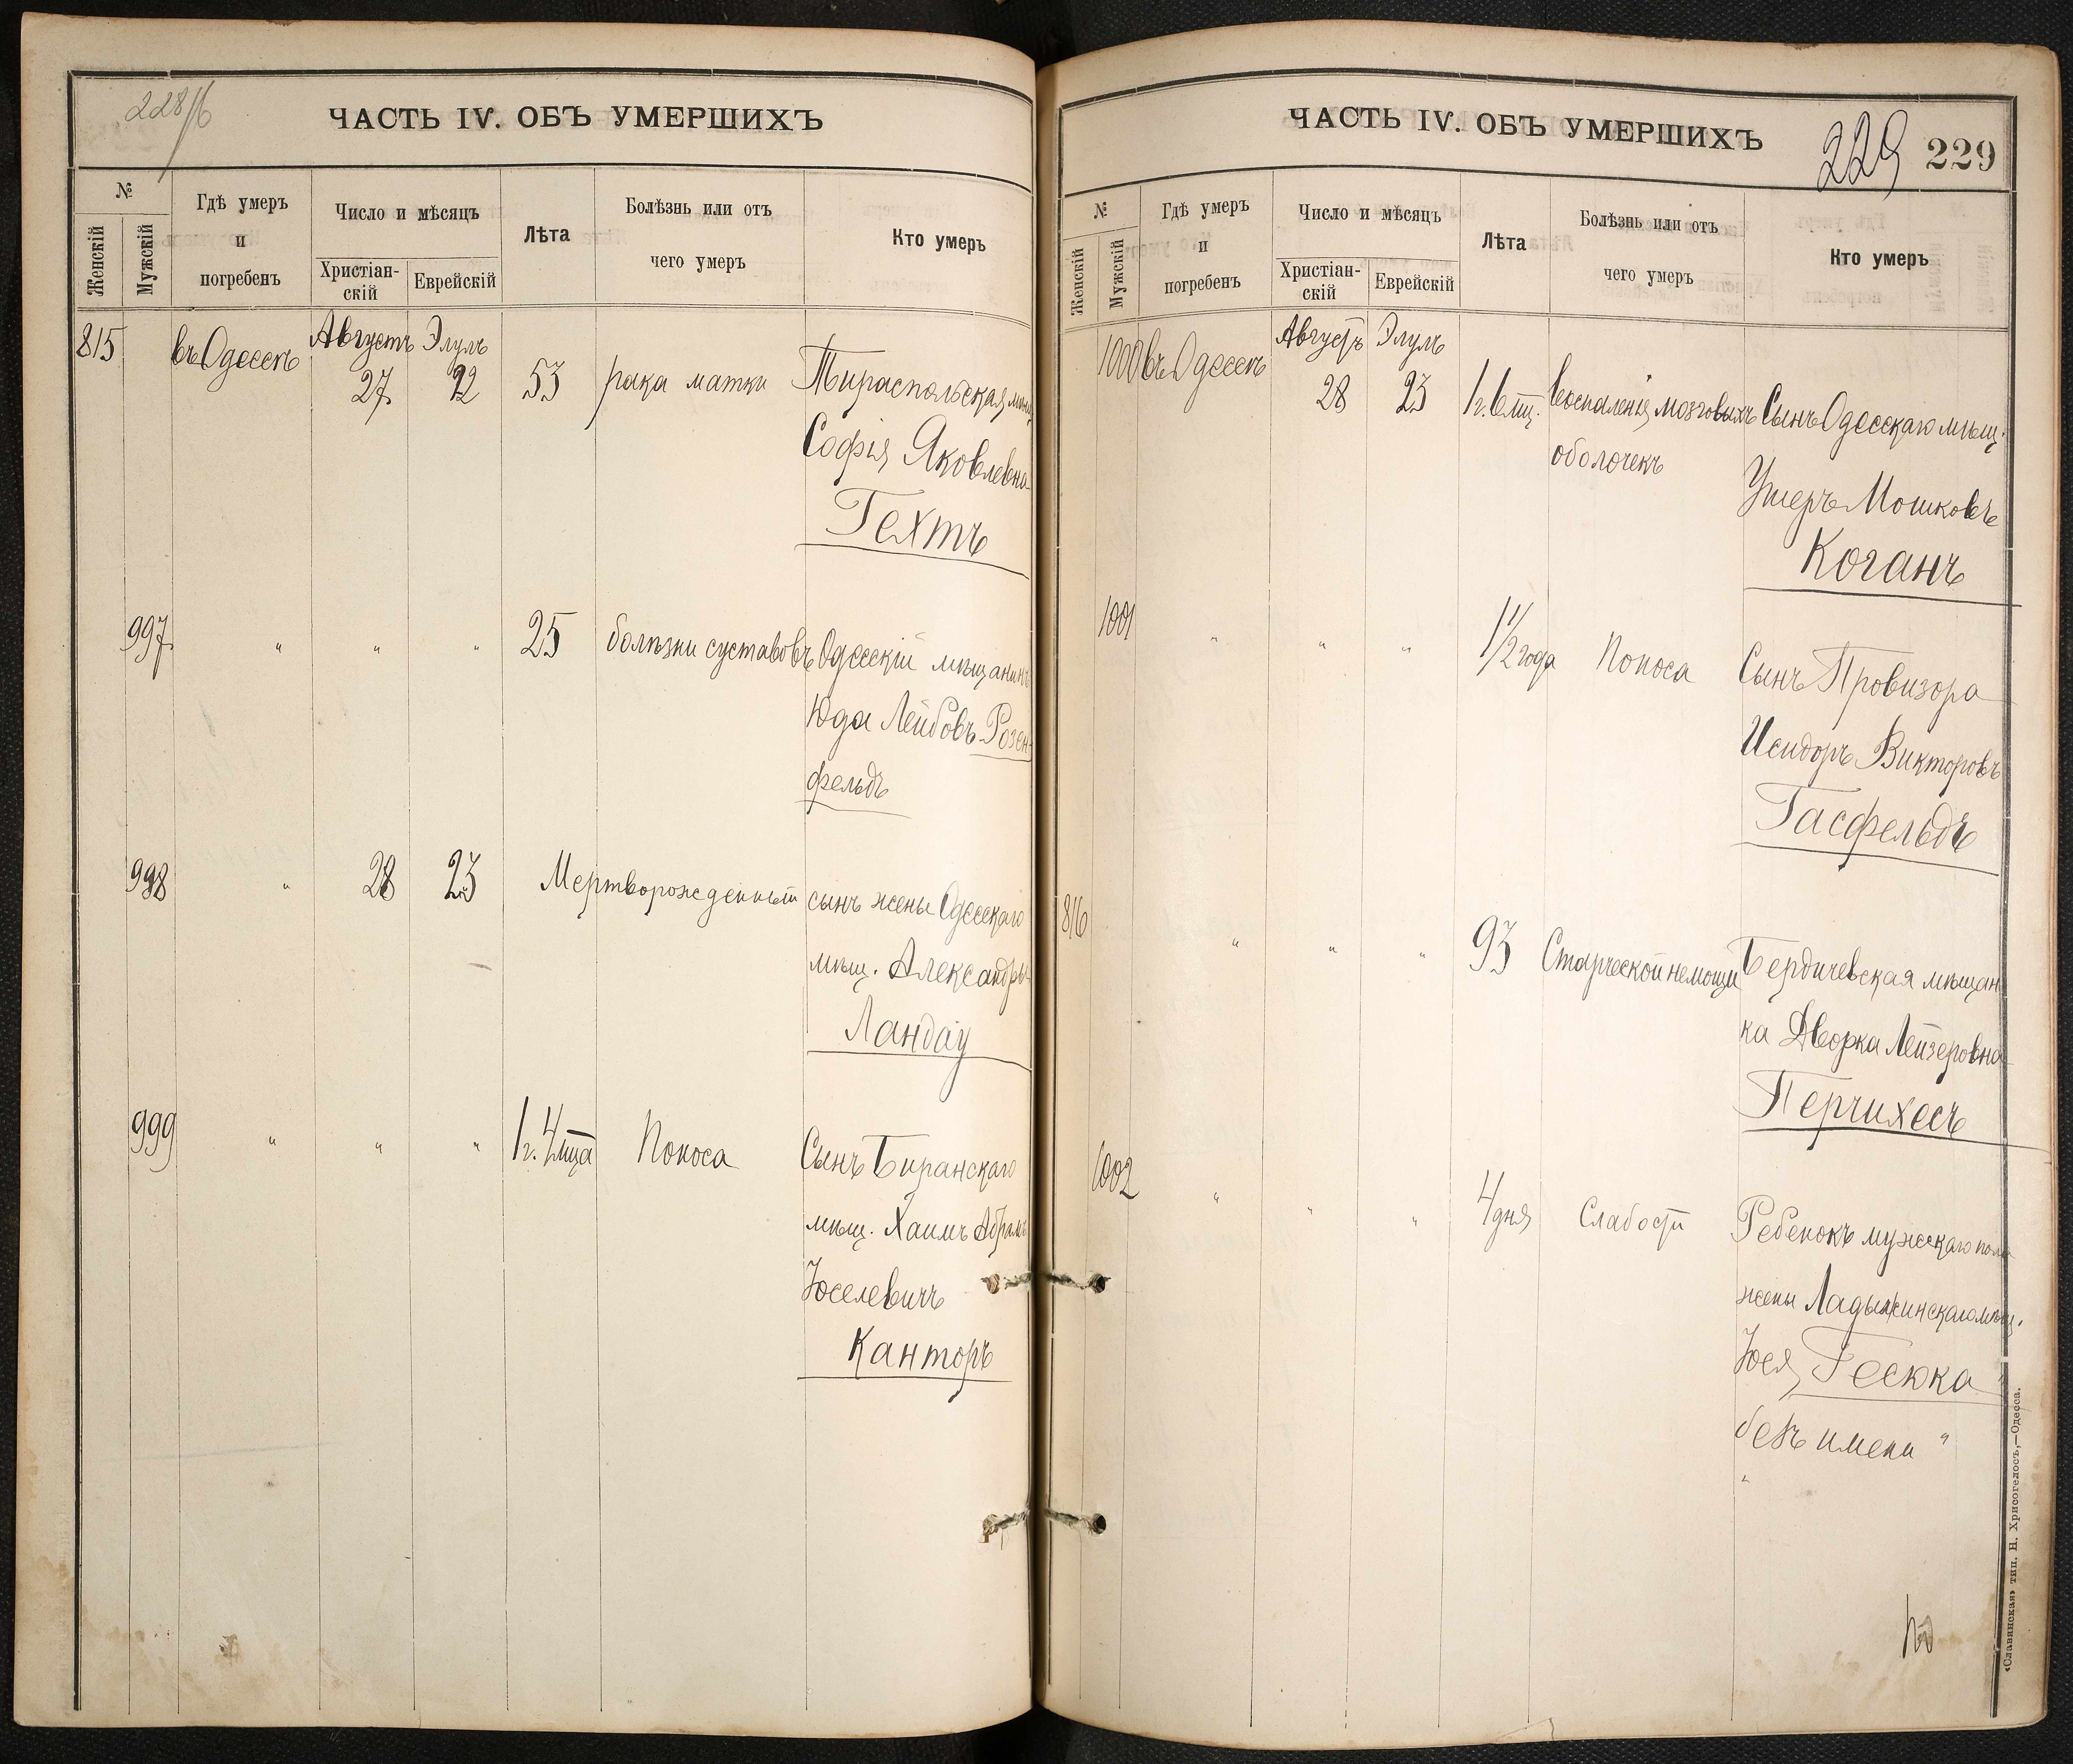 228/б
ЧАСТЬ IV. ОБЪ УМЕРШИХЪ
№
Женскій
Мужскій
Гдѣ умеръ
и
погребенъ
Число и мѣсяцъ
Христіан-
скій
Еврейскій
Лѣта
Болѣзнь или отъ
чего умеръ
Кто умеръ
815 въ Одессѣ Августъ 27 Элулъ 22 53 рака матки Тираспольская мѣщ
Софія Яковлевна
Гехтъ
997 " " " 25 болѣзни суставовъ Одесскій мѣщанинъ
Юда Лейбовъ Розен-
фельдъ
998 " 28 23 Мертворожденный сынъ жены Одесскаго
мѣщ. Александры
Ландау
999 " " " 1 г. 4 мца Поноса Сынъ Биранскаго
мѣщ. Хаимъ Абрамъ
Юселевичъ
Канторъ
ЧАСТЬ IV. ОБЪ УМЕРШИХЪ
229 229
№
Женскій
Мужскій
Гдѣ умеръ
и
погребенъ
Число и мѣсяцъ
Христіан-
скій
Еврейскій
Лѣта
Болѣзнь или отъ
чего умеръ
Кто умеръ
1000 въ Одессѣ Августъ 28 Элулъ 23 1 г. 6 мц. воспаленія мозговыхъ Сынъ Одесскаго мѣщ.
оболочекъ
Ушеръ Мошковъ
Коганъ
1001 " " " 1 1/2 года Поноса Сынъ Провизора
Исидоръ Викторовъ
Гасфельдъ
816 " " " 93 Старческой немощи Бердичевская мѣщан
ка Дворка Лейзеровна
Перчихесъ
1002 " " " 4 дня Слабости Ребенокъ мужскаго пола
жены Ладыжинскаго мѣщ.
Юся Гесюка
безъ имени "
"
«Славянская» тип. Н. Хрисогелосъ,—Одесса.